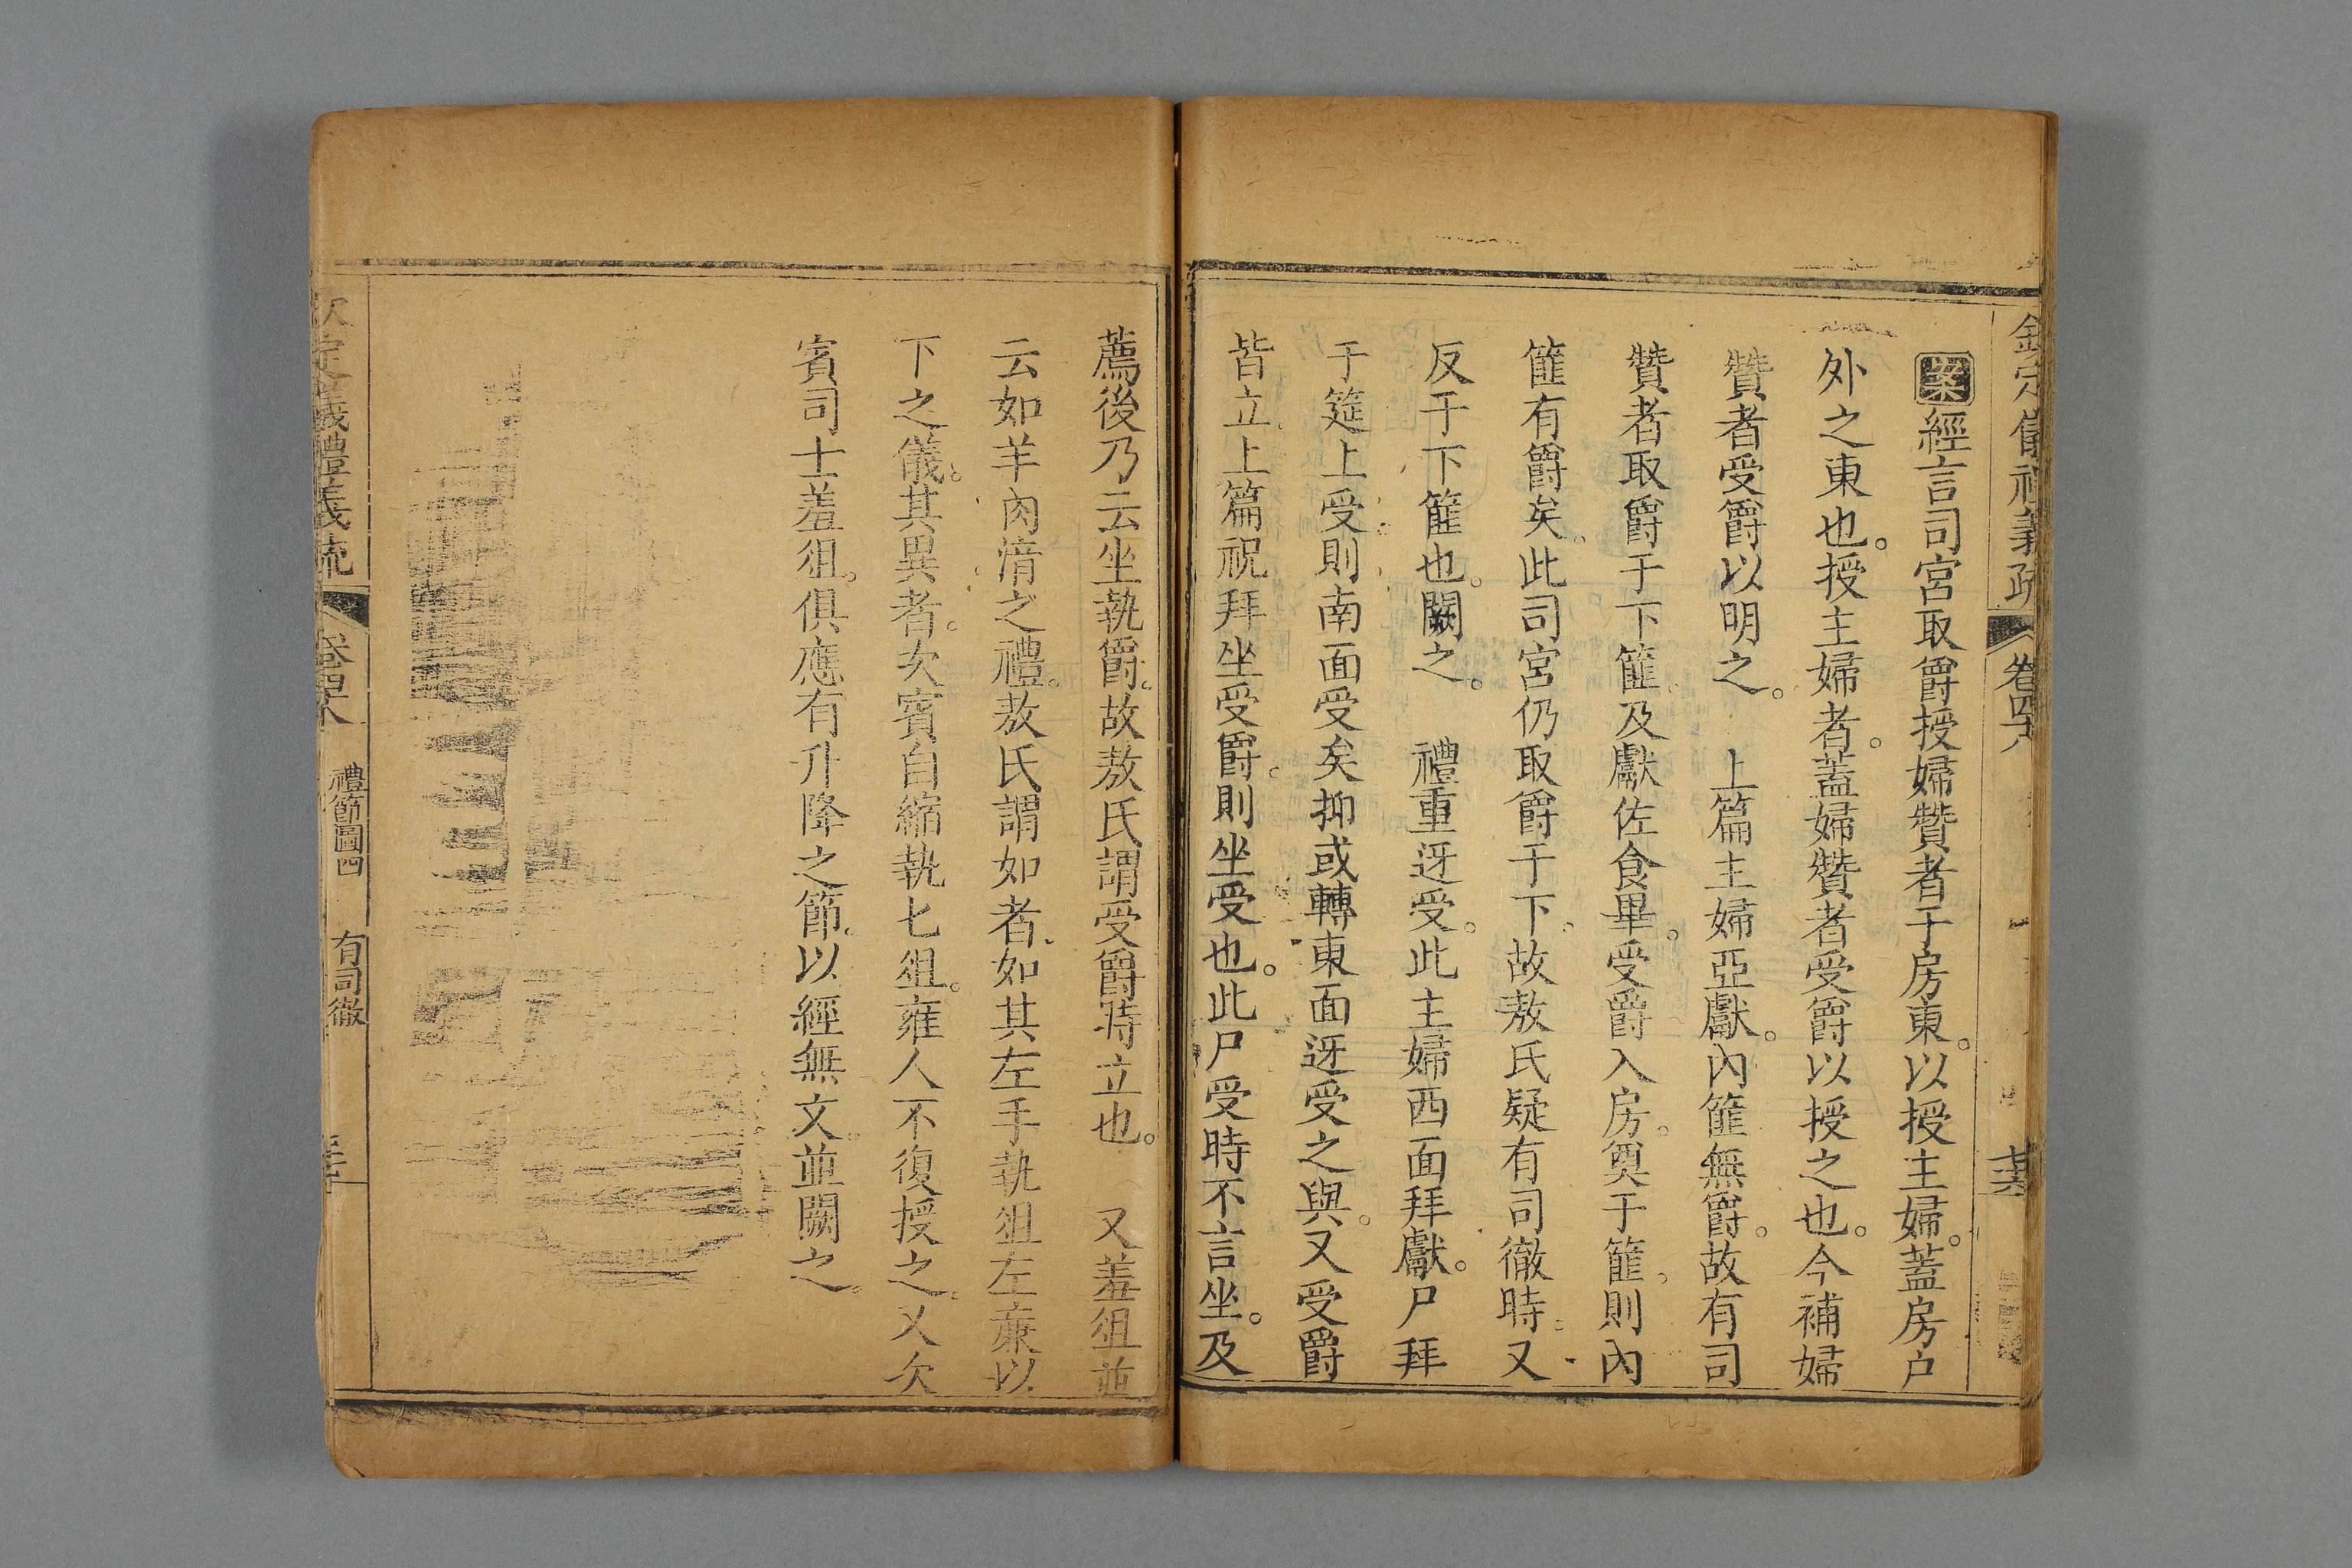 欽定儀禮義疏 卷四十八
案經言司宮取爵授婦贊者于房東。以授主婦。蓋房户
外之東也。授主婦者。蓋婦贊者受爵以授之也。今補婦
贊者受爵以明之。 上篇主婦亞獻。內篚無爵。故有司
贊者取爵于下篚。及獻佐食畢。受爵入房。奠于篚。則內
篚有爵矣。此司宮仍取爵于下。故敖氏疑有司徹時。又
反于下篚也。闕之。 禮重迓受。此主婦西面拜獻。尸拜
于筵上受則南面受矣抑或轉東面迓受之與。又受爵
皆立上篇祝拜坐受爵。則坐受也。此尸受時不言坐。及
薦後乃云坐執爵。故敖氏謂受爵時立也。 又羞俎並
云如羊肉湆之禮。敖氏謂如者。如其左手執俎左廉以
下之儀。其異者。次賓自縮執匕俎。雍人不復授之。又次
賓司士羞俎。俱應有升降之節。以經無文。並闕之。
欽定儀禮義疏 卷四十八 禮節圖四 有司徹